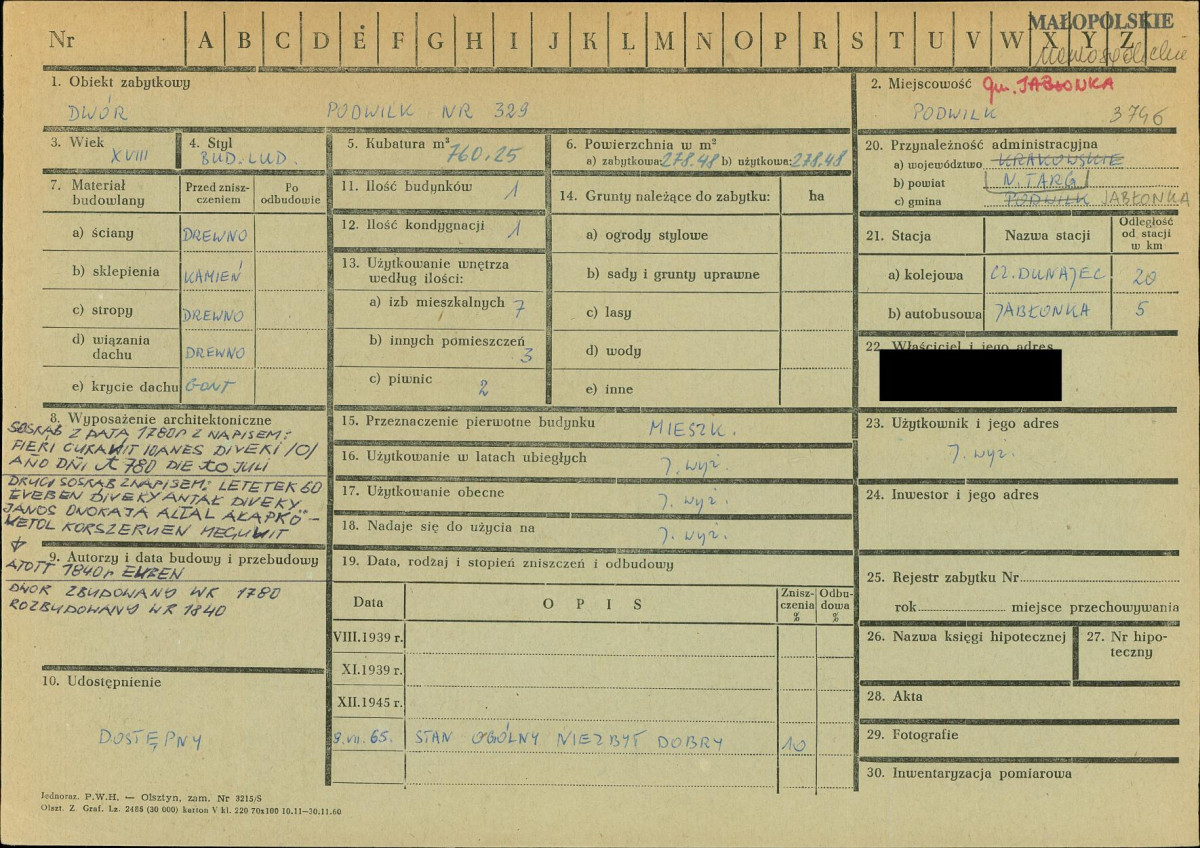 MAŁOPOLSKIE
Nr A B C D E F G H I J K L M N O P R S T U V W X Y Z
nowosądeckie
1. Obiekt zabytkowy
DWÓR PODWILK NR 329
2. Miejscowość gm. JABŁONKA
PODWILK 3746
3. Wiek
XVIII
4. Styl
BUD. LUD.
5. Kubatura m³
760.25
6. Powierzchnia w m²
a) zabytkowa: 278.48 b) użytkowa: 278.48
20. Przynależność administracyjna
a) województwo KRAKOWSKIE
b) powiat N. TARG
c) gmina PODWILK JABŁONKA
7. Materiał budowlany
Przed zniszczeniem
Po odbudowie
a) ściany DREWNO
b) sklepienia KAMIEŃ
c) stropy DREWNO
d) wiązania dachu DREWNO
e) krycie dachu GONT
11. Ilość budynków 1
12. Ilość kondygnacji 1
13. Użytkowanie wnętrza według ilości:
a) izb mieszkalnych 7
b) innych pomieszczeń 3
c) piwnic 2
14. Grunty należące do zabytku: ha
a) ogrody stylowe
b) sady i grunty uprawne
c) lasy
d) wody
e) inne
21. Stacja Nazwa stacji Odległość od stacji w km
a) kolejowa CZ. DUNAJEC 20
b) autobusowa JABŁONKA 5
22. Właściciel i jego adres
8. Wyposażenie architektoniczne
SOSRĄB Z DATĄ 1780r Z NAPISEM:
FIERI CURAWIT IOANES DIVEKI /O/
AÑO DÑI 1780 DIE 10 JULI
DRUGI SOSRĄB Z NAPISEM: LETETEK 60
EVEBEN DIVEKY ANTAŁ DIVEKY
JANOS UNOKAJA ALTAL AŁAPKÖ-
WETOL KORSZERUEN MEGUWIT
9. Autorzy i data budowy i przebudowy
ATOTT 1840r EWBEN
DWÓR ZBUDOWANY WR 1780
ROZBUDOWANY WR 1840
10. Udostępnienie
DOSTĘPNY
15. Przeznaczenie pierwotne budynku MIESZK.
16. Użytkowanie w latach ubiegłych J. wyż.
17. Użytkowanie obecne J. wyż.
18. Nadaje się do użycia na J. wyż.
19. Data, rodzaj i stopień zniszczeń i odbudowy
Data OPIS Zniszczenia % Odbudowa %
VIII.1939 r.
XI.1939 r.
XII.1945 r.
9.VII.65. STAN OGÓLNY NIEZBYT DOBRY 10
23. Użytkownik i jego adres
J. wyż.
24. Inwestor i jego adres
25. Rejestr zabytku Nr
rok miejsce przechowywania
26. Nazwa księgi hipotecznej
27. Nr hipoteczny
28. Akta
29. Fotografie
30. Inwentaryzacja pomiarowa
Jednoraz. P.W.H. — Olsztyn, zam. Nr 3215/S
Olszt. Z. Graf. Lz. 2485 (30 000) karton V kl. 220 70x100 10.11—30.11.60